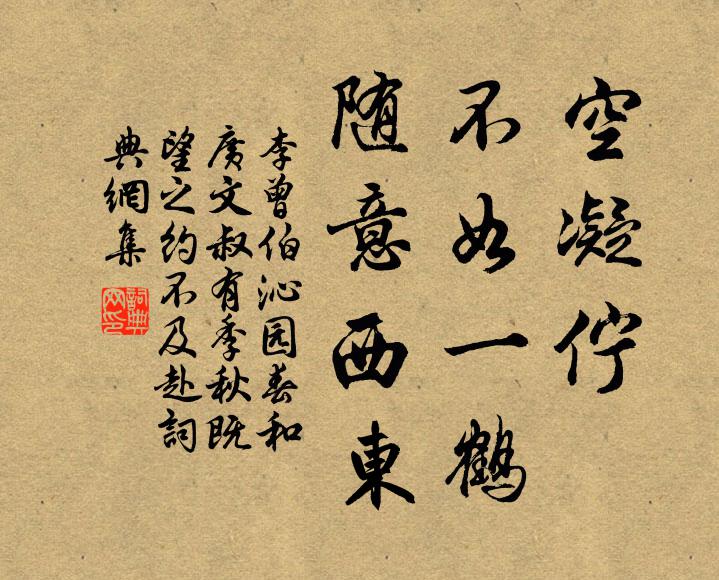 空凝佇
不如一鶴
随意西東
李曾伯沁园春和
廣文叔有季秋既
望之約不及赴詞
典網集
詞典
网印